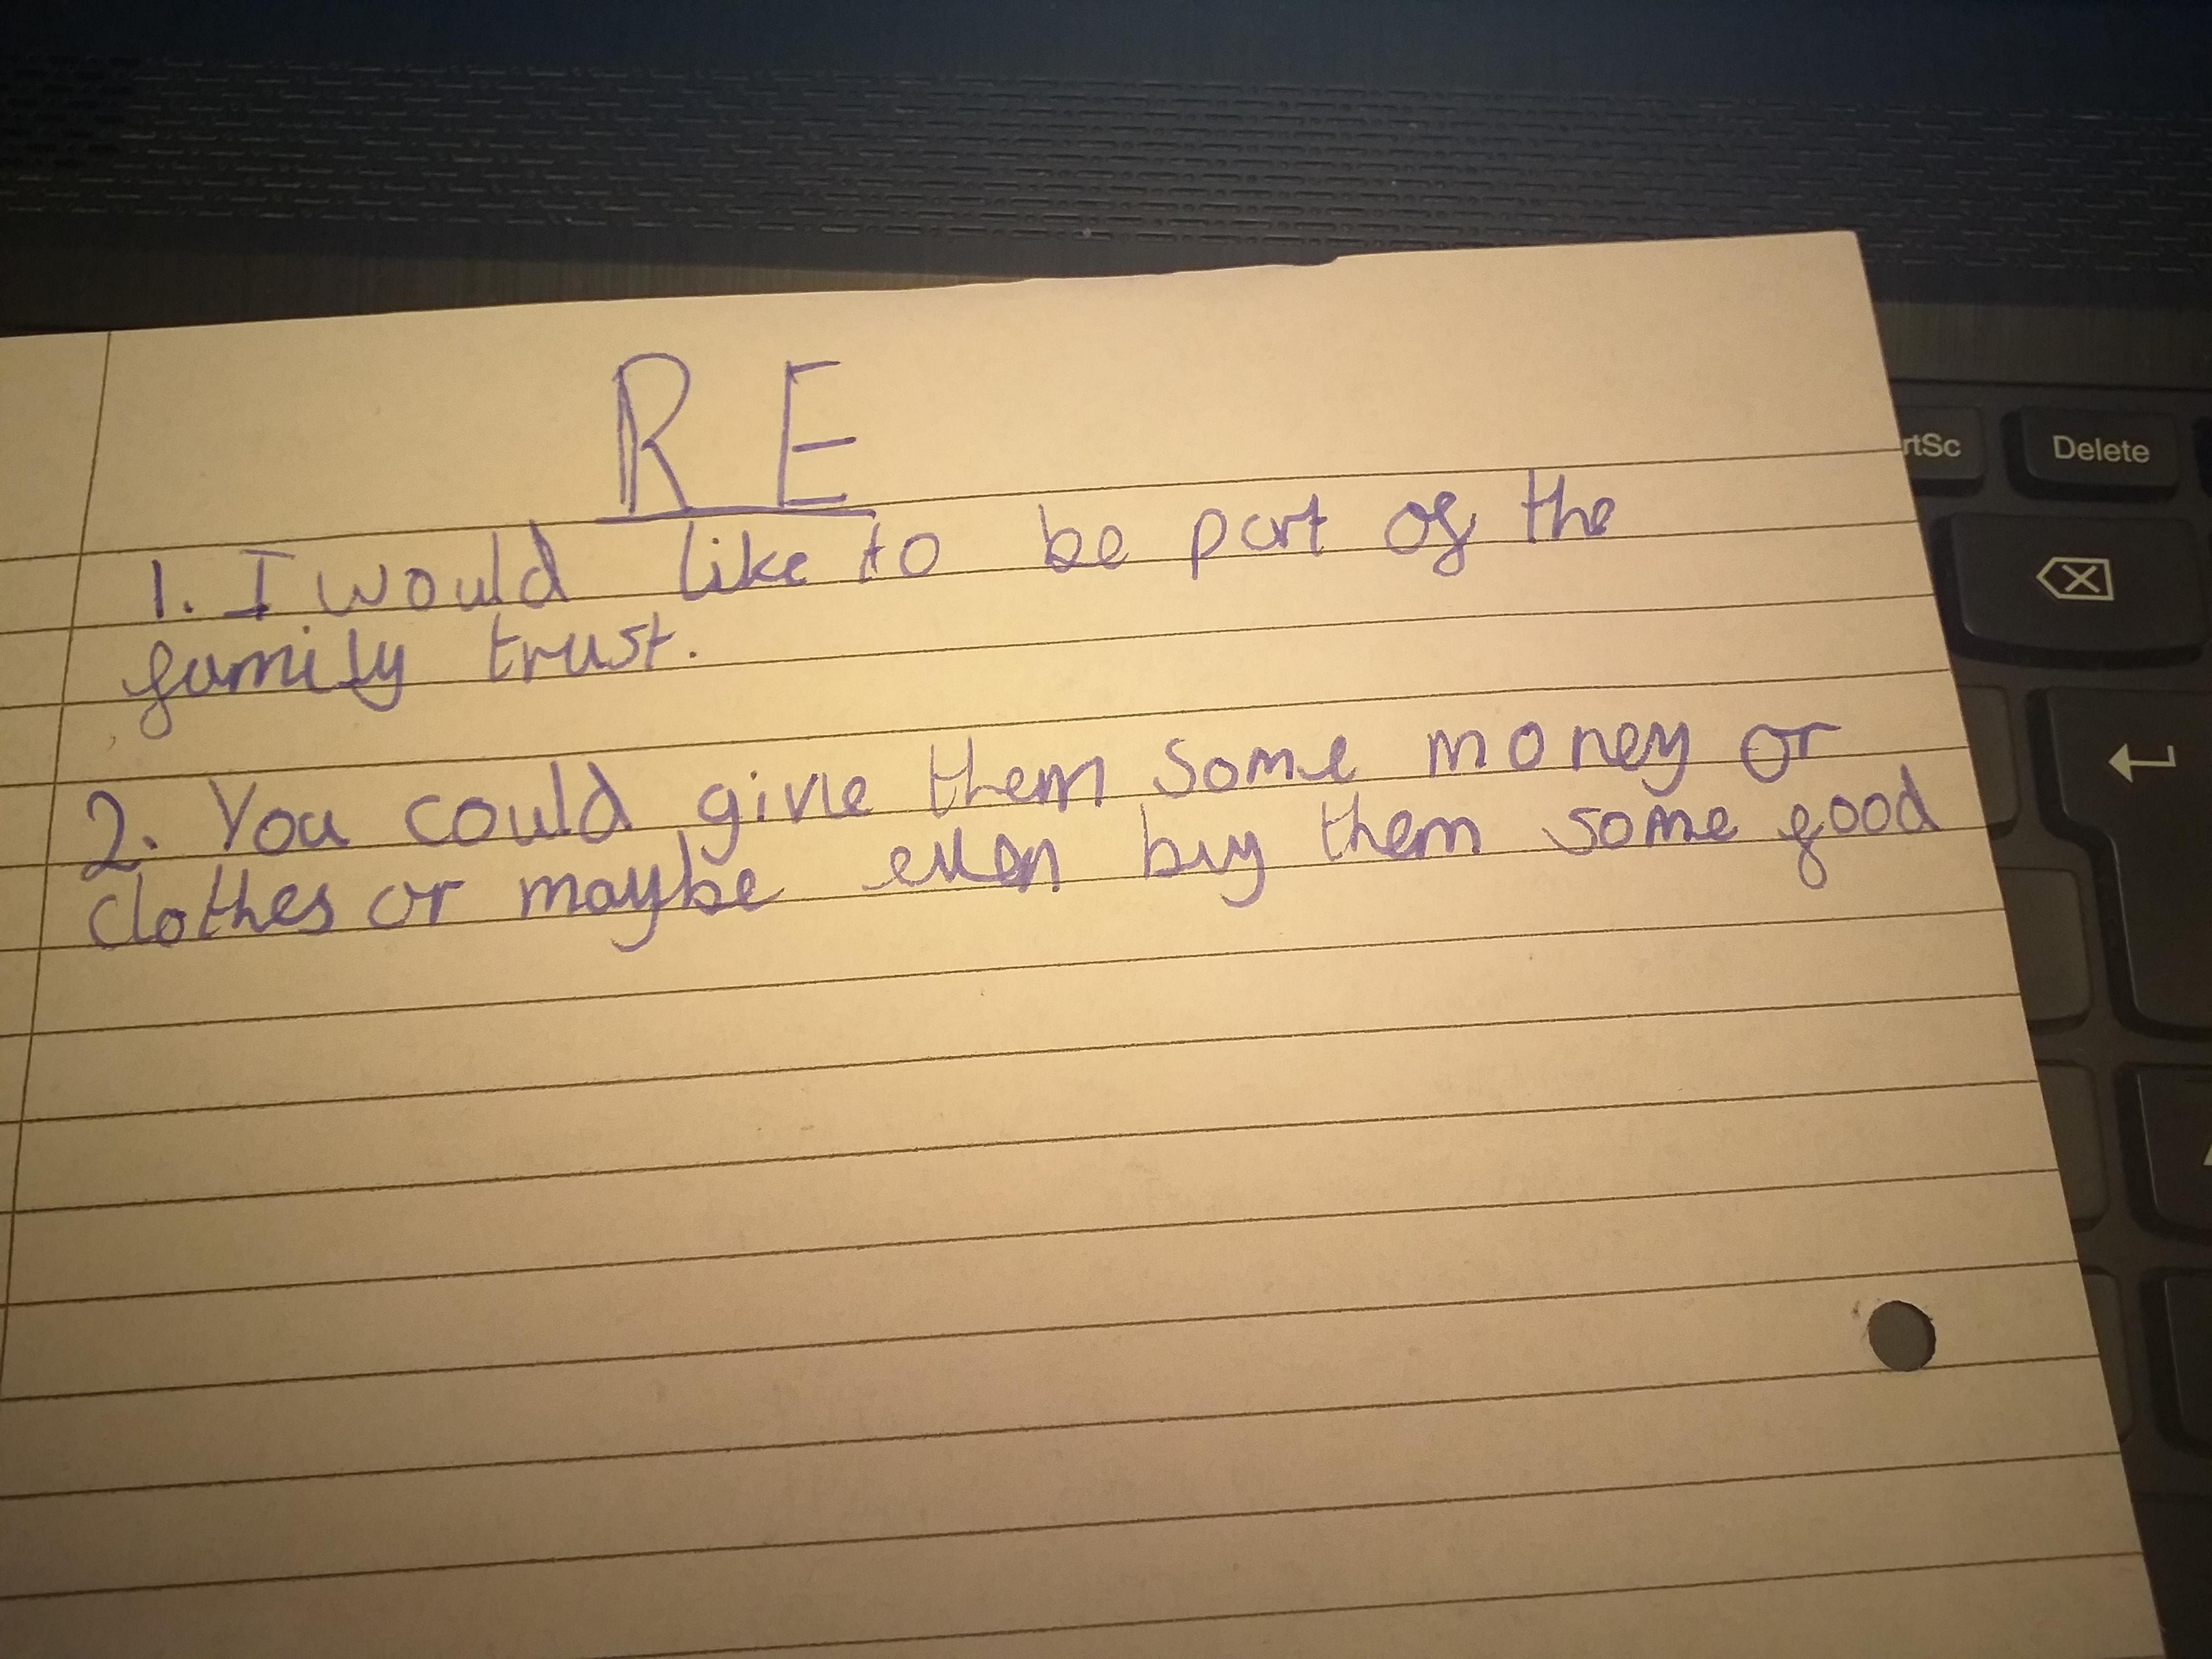 R E
1. I would like to be part of the
family trust.
2. You could give them some money or
clothes or maybe even buy them some food
rtSc
Delete